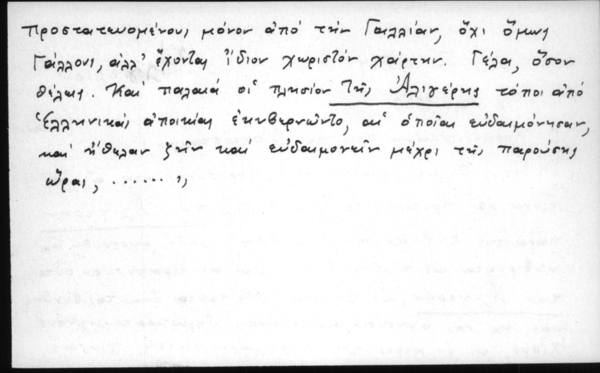 προστατευομένους μόνον ἀπό τὴν Γαλλίαν, ὄχι ὅμως
Γάλλους, ἀλλ' ἔχοντας ἴδιον χωριστόν χάρτην. Γέλα, ὅσον
θέλεις. Καί παλαιά οἱ πλησίον τῆς Ἀλιγέρης τόποι ἀπό
Ἑλληνικάς ἀποικίας ἐκυβερνῶντο, αἱ ὁποῖαι εὐδαιμόνησαν,
καί ἤθελαν ζῆν καί εὐδαιμονεῖν μέχρι τῆς παρούσης
ὥρας, ......,,